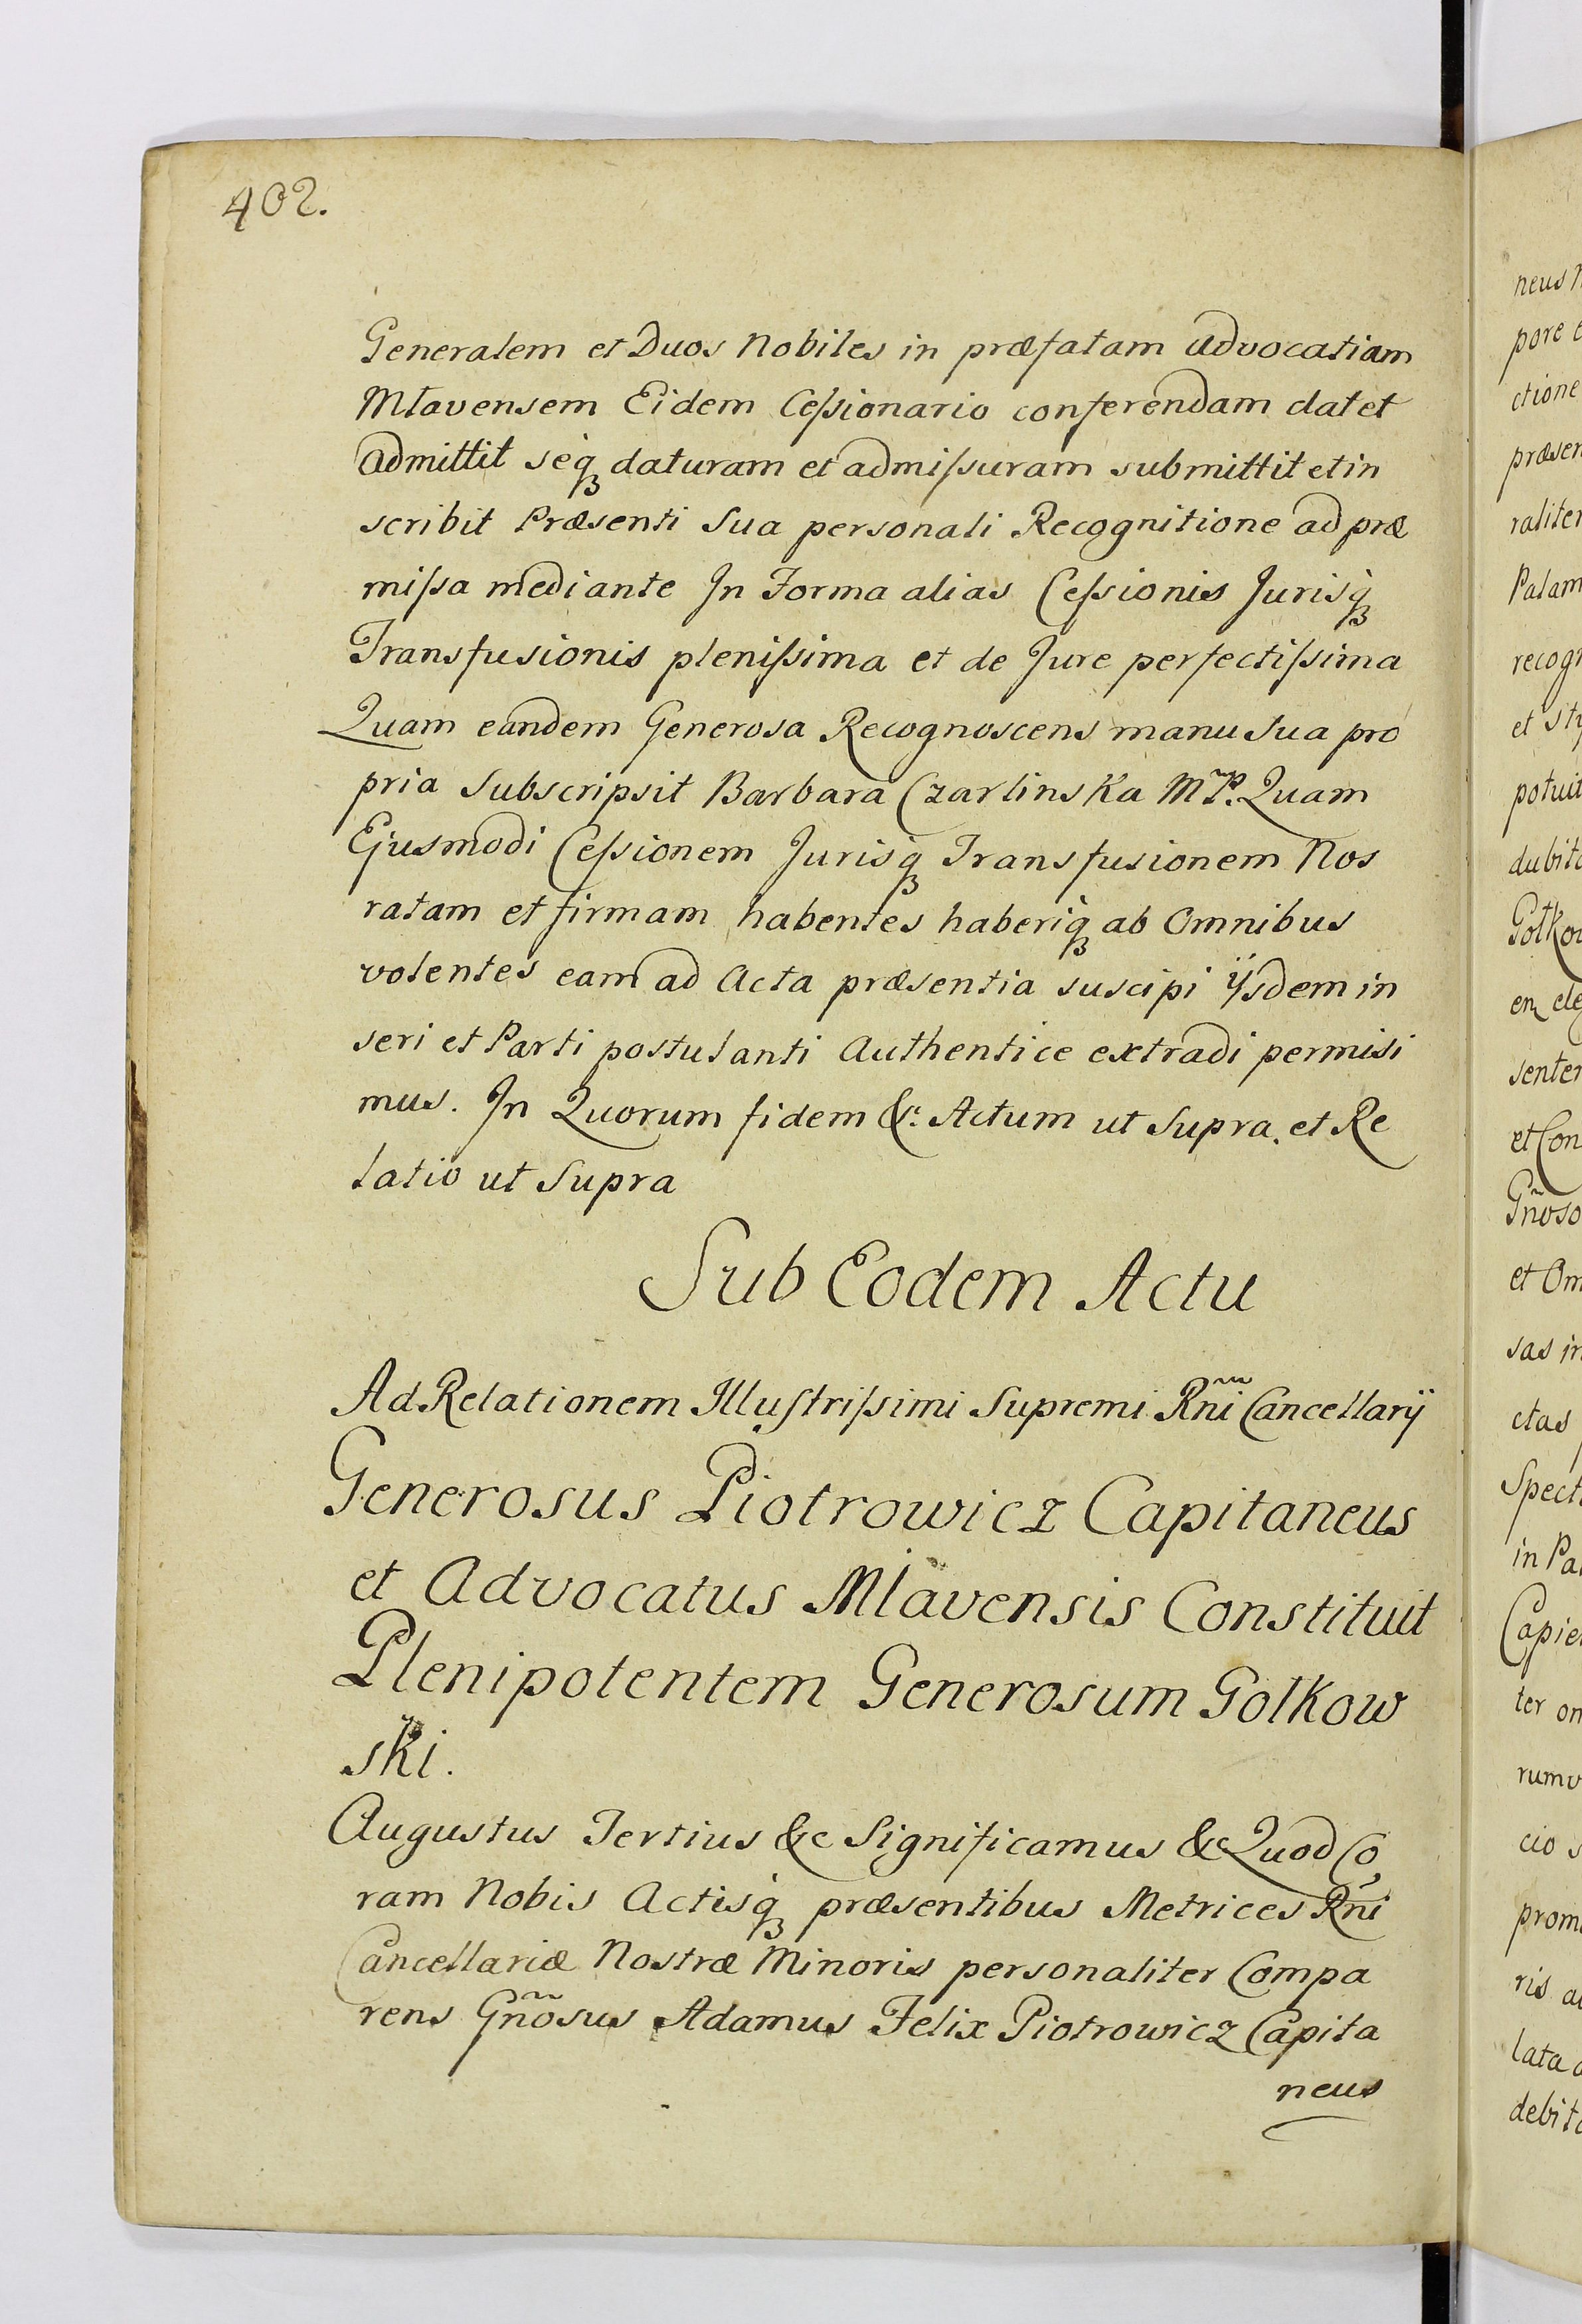 402.
Generalem et Duos Nobiles in præfatam advocatiam
Mlavensem Eidem Ceſsionario conferendam dat et
admittit seq̀ꝫ daturam et admiſsuram submittit et in
scribit Præsenti Sua personali Recognitione ad præ
miſsa mediante In Forma alias Ceſsionis Jurisq̀ꝫ
Transfusionis pleniſsima et de Jure perfectiſsima
Quam eandem Generosa Recognoscens manu Sua pro
pria Subscripsit Barbara Czarlinska M̃P. Quam
Ejusmodi Ceſsionem Jurisq̀ꝫ Transfusionem Nos
ratam et firmam habentes haberiq̀ꝫ ab Omnibus
volentes eam ad Acta præsentia suscipi ÿsdem in
seri et Parti postulanti Authentice extradi permisi
mus. In Quorum fidem &c: Actum ut Supra. et Re
latio ut Supra
Sub Eodem Actu
Ad Relationem Illuſtriſsimi Supremi Rñi Cancellarÿ
Generosus Piotrowicz Capitaneus
et Advocatus Mlavensis Constituit
Plenipotentem Generosum Golkow
ski.
Augustus Tertius &c Significamus &c Quod Co
ram Nobis Actisq̀ꝫ præsentibus Metrices Rñi
Cancellariæ Nostræ Minoris personaliter Compa
rens Gñosus Adamus Felix Piotrowicz Capita
neus
pore
ctione
præsen
raliter
Palam
recogn
potuit
dubita
Golkow
senter
et Con
Gñoso
et Om
sas in
ctas
Spect
in Pa
Capie
ter om
rumv
cio s
prom
ris a
lata
debit